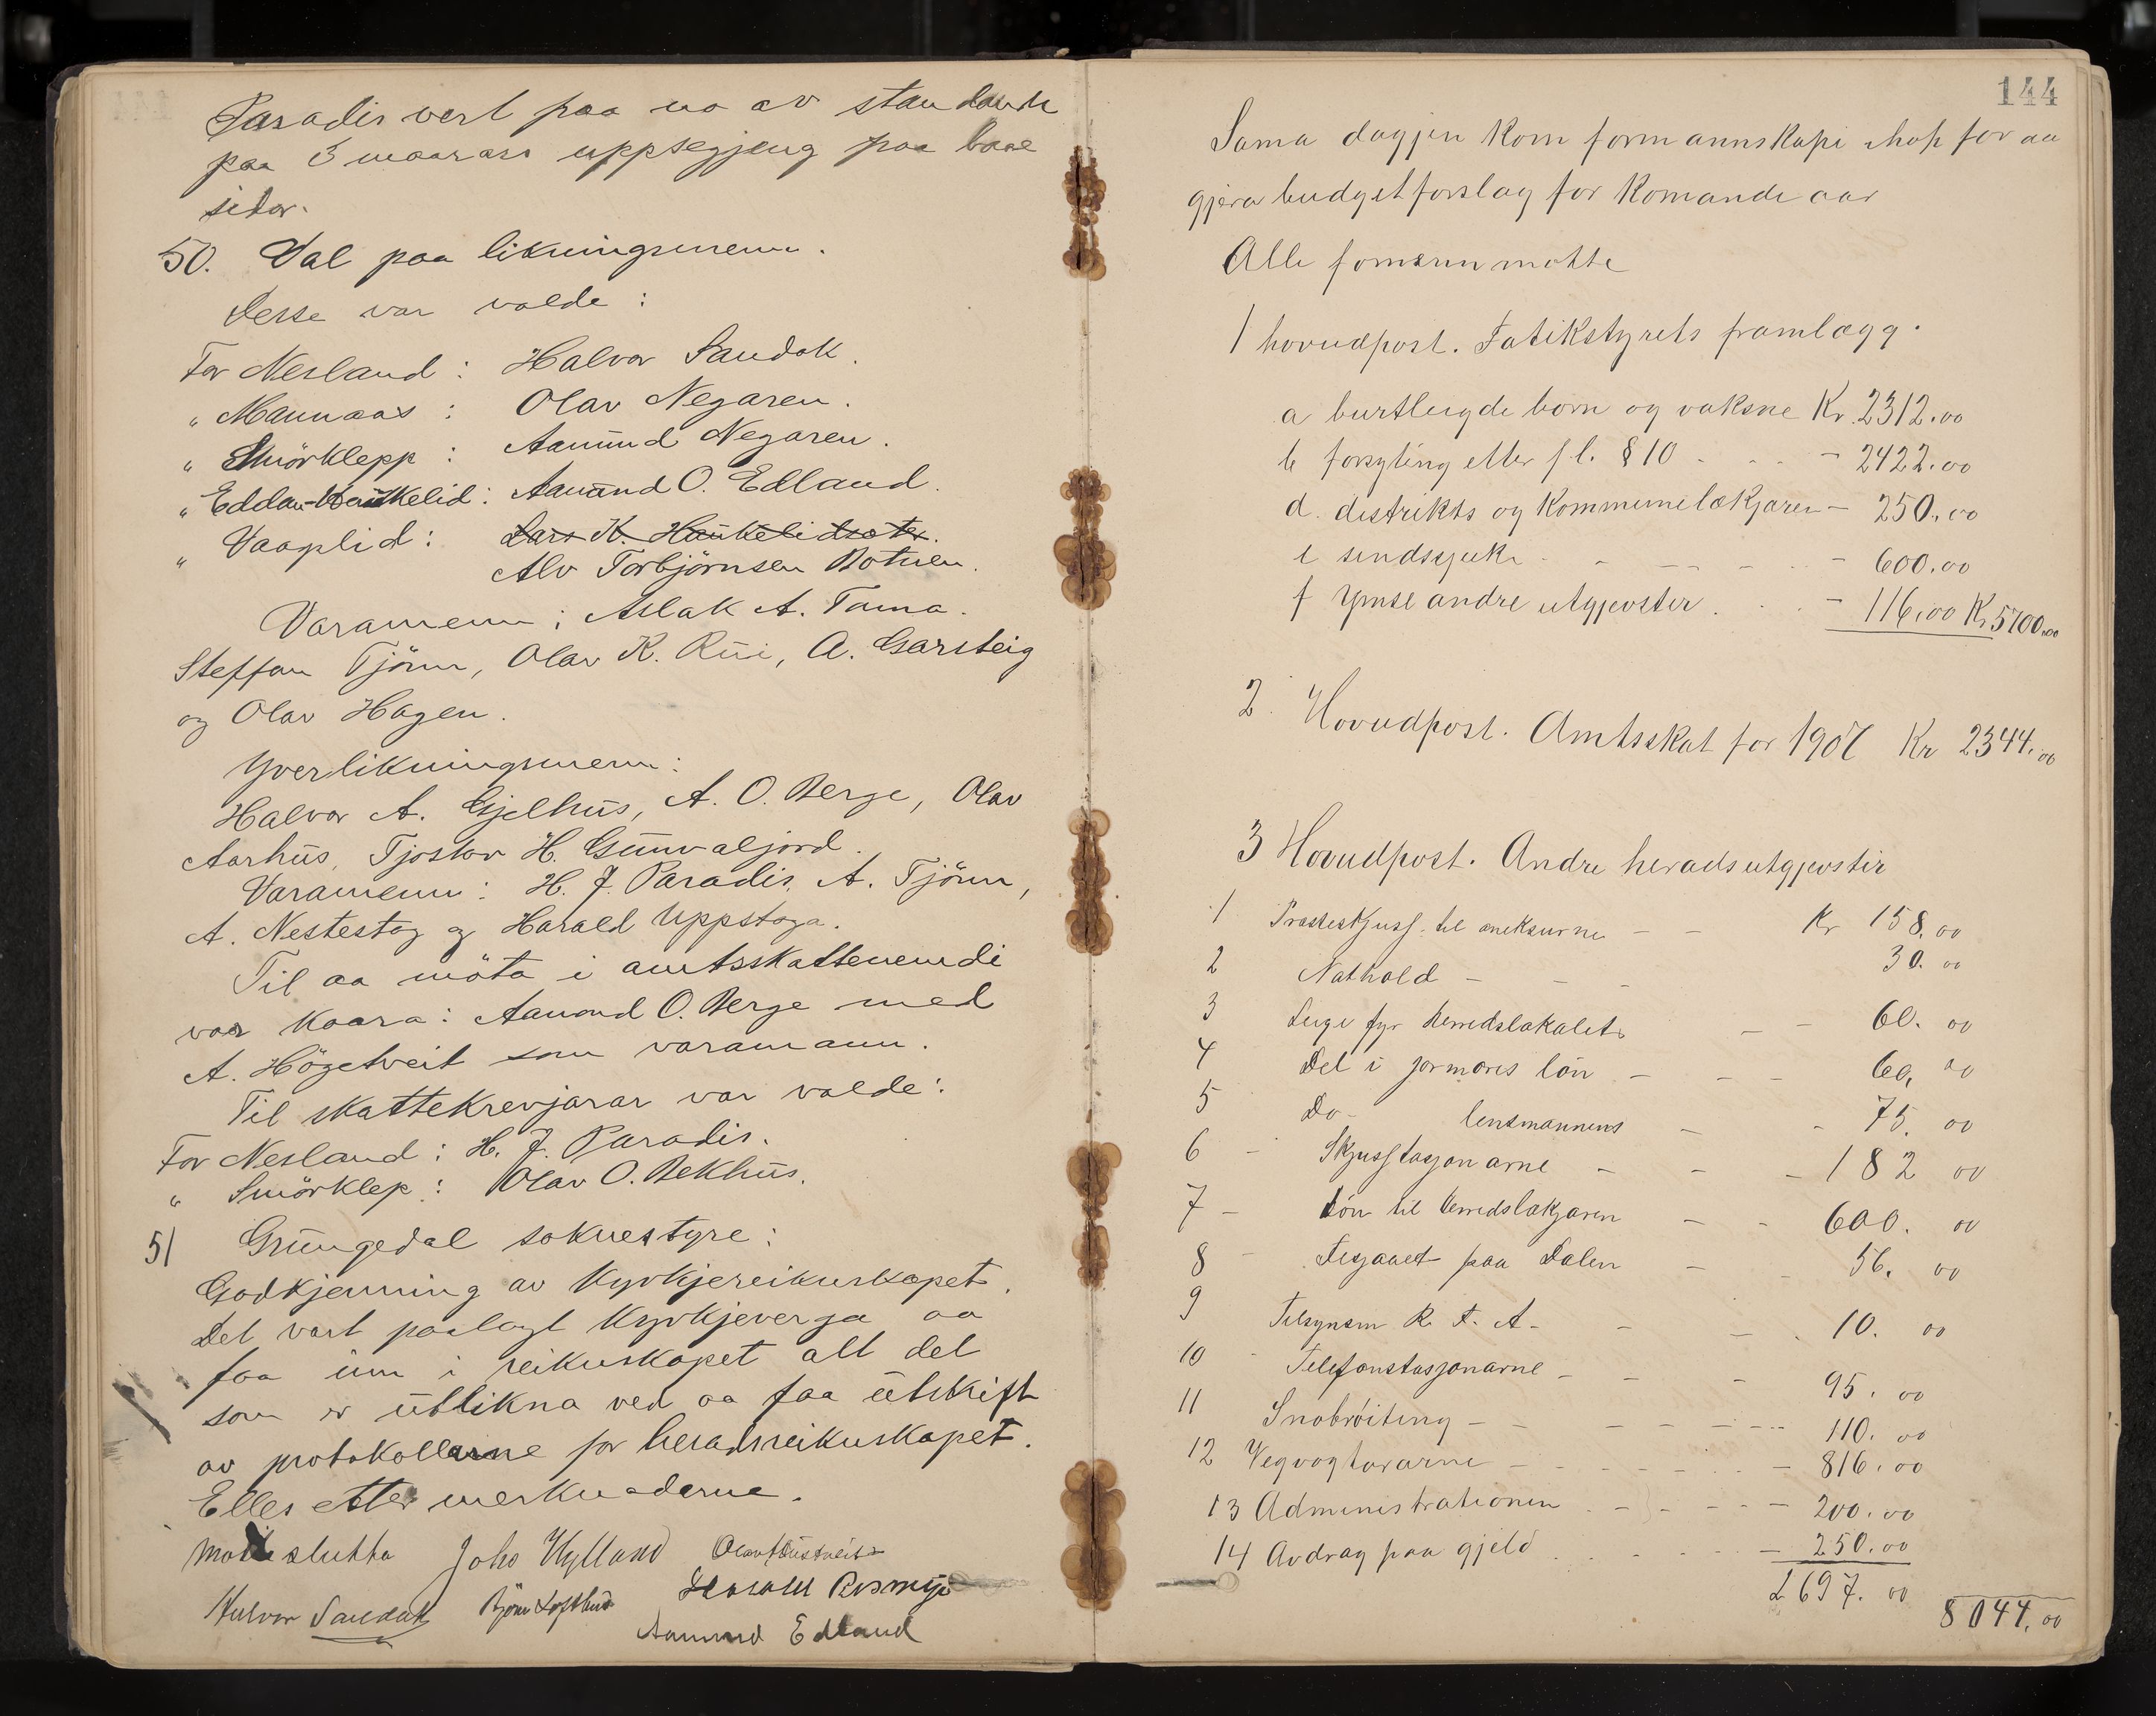 Paradis vert paa no av standande
paa 3 maanars uppsegjing paa baae
sidor.
50. Val paa likningsmenn.
Desse var valde:
For Nesland: Halvor Sandok.
" Mannaas: Olav Negaren.
" Smörklepp: Aamund Negaren.
" Eddan-Haukelid: Aamund O. Edland.
" Vaaglid: Lars K. Haukelidsæter.
Alv Torbjörnsen Botnen.
Varamenn: Aslak A. Tama.
Steffan Tjönn, Olav K. Rui, A. Garsteig
og Olav Hagen.
Yverlikningsmenn:
Halvor A. Gjelhus, A. O. Berge, Olav
Aarhus, Tjostov H. Gunvaljord.
Varamenn: H. J. Paradis, A. Tjönn,
A. Nestestog og Harald Uppstoga.
Til aa möta i amtsskattenemdi
var kaara: Aamond O. Berge med
A. Högetveit som varamann.
Til skattekrevjarar var valde:
For Nesland: H. J. Paradis.
" Smörklep: Olav O. Bekhus.
51 Grungedal soknestyre:
Godkjenning av kyrkjereikuskapet.
Det vart paalagt kyrkjeverja aa
faa inn i reikuskapet alt det
som er utlikna ved aa faa utskrift
av protokollarne for heradsreikuskapet.
Elles etter merknadarne.
Möte slutta Joho Hylland Olav
Halvor Sandok Björn Loftshus Harald
Aamund Edland
144
Sama dagjen kom formannskapi ihop for aa
gjera budgetforslag for komande aar
Alle formenn møtte
1 hovudpost. Fatikstyrets framlægg.
a burtleigde born og vaksne Kr. 2312.00
b forsyting etter fl. § 10 - 2422.00
d. distrikts og kommunelækjaren - 250.00
e sindssjuke - 600.00
f Ymse andre utgjoster. - 116.00 Kr 5700.00
2. Hovudpost. Amtsskat for 1907 Kr 2344.00
3 Hovudpost. Andre heradsutgjostir
1 Presteskjuss til aneksurne - - Kr 158.00
2 Nathold - - - 30.00
3 Leige fyr herredslokalet - - 60.00
4 Del i jormoris løn - - - 60.00
5 Do - lensmannens - - 75.00
6 - Skjusstasjonarne - - - 182 00
7 - Løn til herredslækjaren - - 600.00
8 - paa Dalen - - 56.00
9 Tilsynsm R. T. A. - - 10.00
10 - Telefonstasjonarne - - - 95.00
11 Snøbrøiting - - - - - 110.00
12 Vegvogtararne - - - - - 816.00
13 Administrationen - - - - 200.00
14 Avdrag paa gjeld - 250.00
2697.00
8044.00